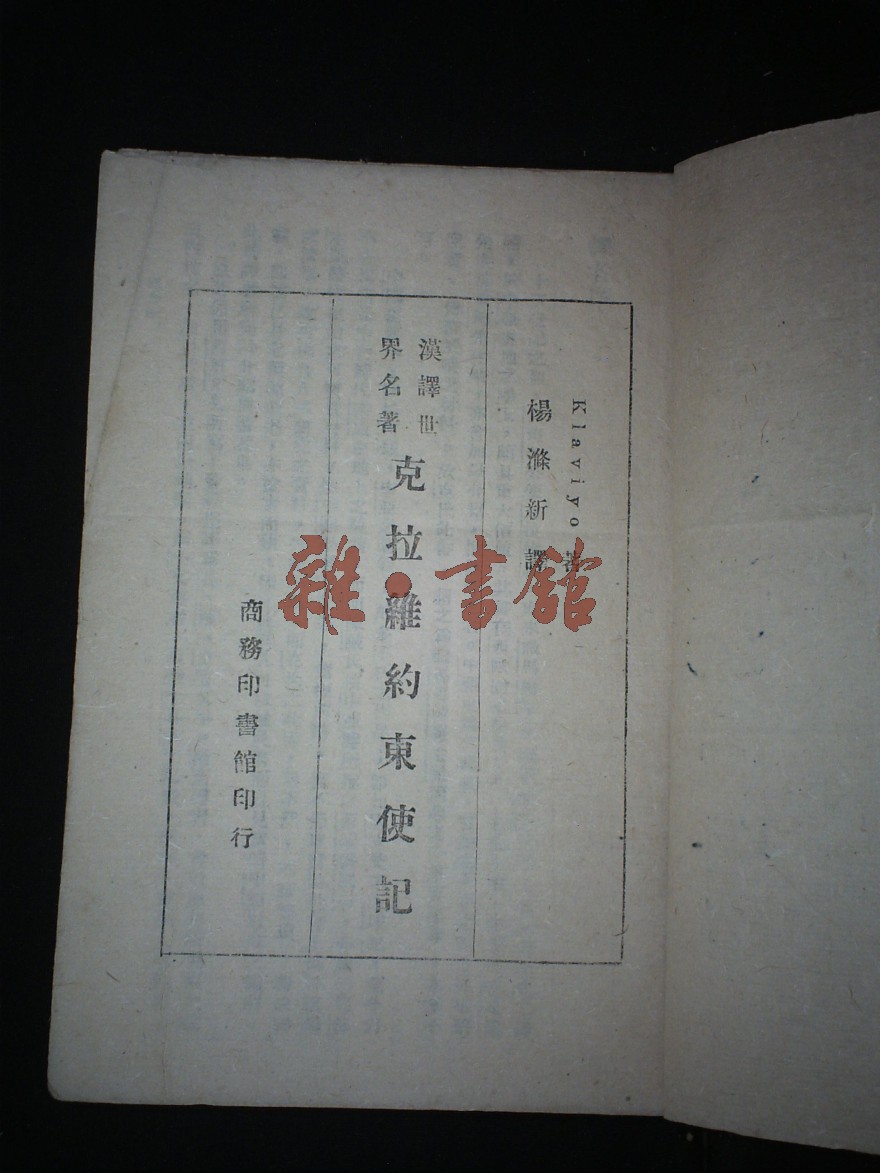 Klaviyo 著
楊滌新譯
漢譯世
界名著
克拉維約東使記
商務印書館印行
雜·書館